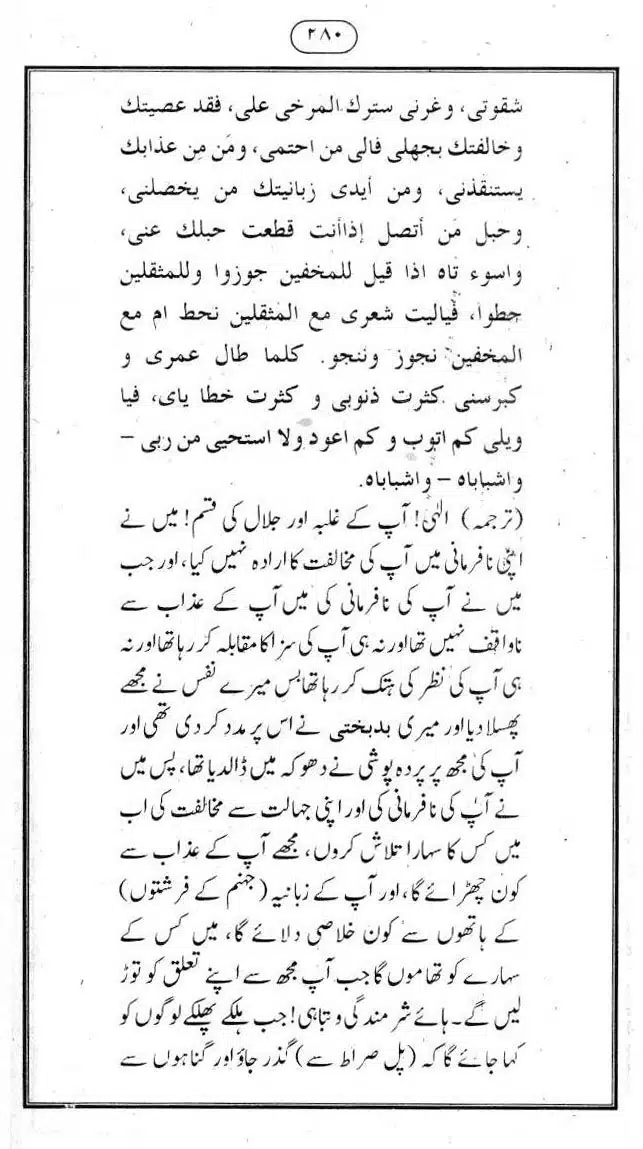 ۲۸۰
شقوتی، وغرنی سترك المرخی علی، فقد عصیتك
وخالفتك بجهلی فالی من احتمی، ومَن مِن عذابك
یستنقذنی، ومن أیدی زبانیتك من یخصلنی،
وحبل مَن أتصل إذاأنت قطعت حبلك عنی،
واسوء تاه اذا قیل للمخفین جوزوا وللمثقلین
حطوا، فیالیت شعری مع المثقلین نحط ام مع
المخفین نجوز وننجو. کلما طال عمری و
کبرسنی کثرت ذنوبی و کثرت خطا یای، فیا
ویلی کم اتوب و کم اعود ولا استحیی من ربی –
واشباباه – واشباباه.
(ترجمہ) الٰہی! آپ کے غلبہ اور جلال کی قسم! میں نے
اپنی نافرمانی میں آپ کی مخالفت کا ارادہ نہیں کیا، اور جب
میں نے آپ کی نافرمانی کی میں آپ کے عذاب سے
ناواقف نہیں تھا اور نہ ہی آپ کی سزا کا مقابلہ کر رہا تھا اور نہ
ہی آپ کی نظر کی ہتک کر رہا تھا بس میرے نفس نے مجھے
پھسلا دیا اور میری بدبختی نے اس پر مدد کر دی تھی اور
آپ کی مجھ پر پردہ پوشی نے دھوکہ میں ڈالدیا تھا، پس میں
نے آپ کی نافرمانی کی اور اپنی جہالت سے مخالفت کی اب
میں کس کا سہارا تلاش کروں، مجھے آپ کے عذاب سے
کون چھڑائے گا، اور آپ کے زبانیہ (جہنم کے فرشتوں)
کے ہاتھوں سے کون خلاصی دلائے گا، میں کس کے
سہارے کو تھاموں گا جب آپ مجھ سے اپنے تعلق کو توڑ
لیں گے۔ ہائے شرمندگی و تباہی! جب ہلکے پھلکے لوگوں کو
کہا جائے گا کہ (پل صراط سے) گذر جاؤ اور گناہوں سے